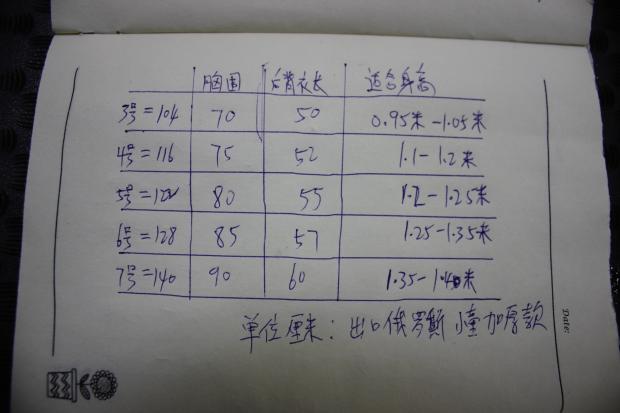 胸围 后背衣长 适合身高
3号=104 70 50 0.95米-1.05米
4号=116 75 52 1.1-1.2米
5号=122 80 55 1.2-1.25米
6号=128 85 57 1.25-1.35米
7号=140 90 60 1.35-1.40米
单位厘米：出口俄罗斯 小童加厚款
Date: